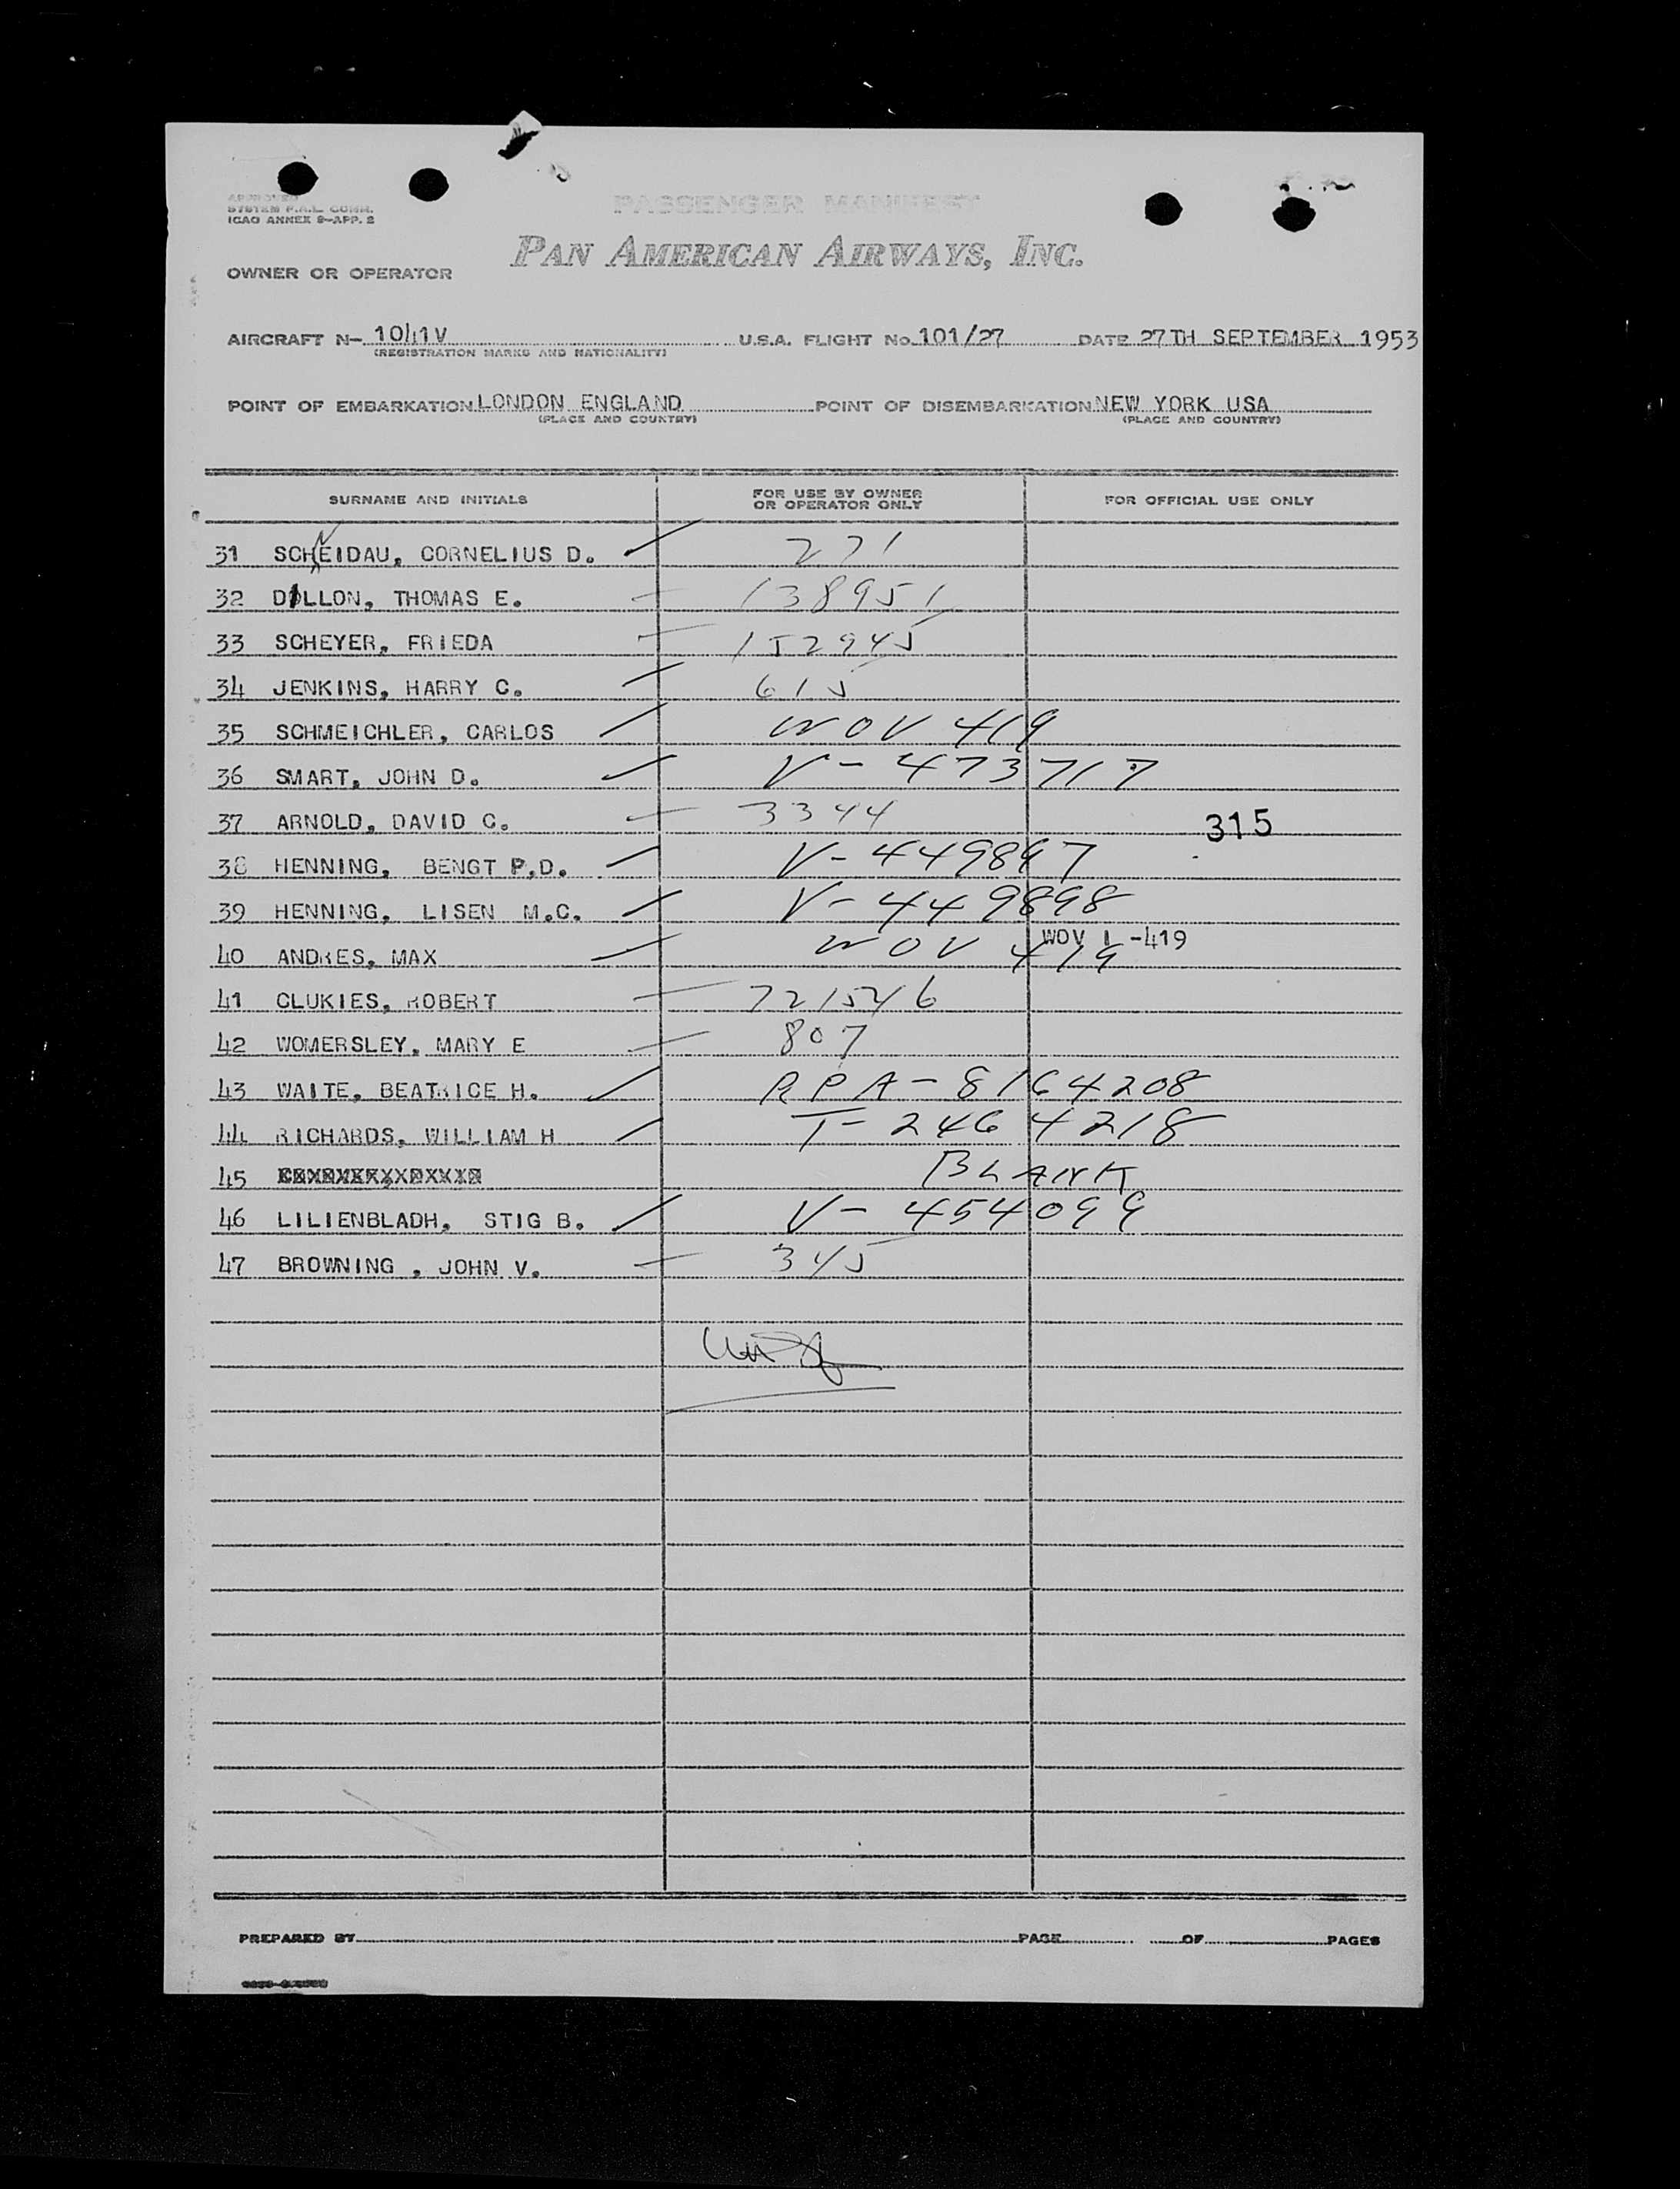 APPROVED
SYSTEM F.A.L. COMM.
ICAO ANNEX 9-APP. 2
PASSENGER MANIFEST
PAN AMERICAN AIRWAYS, INC.
OWNER OR OPERATOR
AIRCRAFT N- 1041V U.S.A. FLIGHT No. 101/27 DATE 27TH SEPTEMBER 1953
(REGISTRATION MARKS AND NATIONALITY)
POINT OF EMBARKATION LONDON ENGLAND POINT OF DISEMBARKATION NEW YORK USA
(PLACE AND COUNTRY) (PLACE AND COUNTRY)
SURNAME AND INITIALS FOR USE BY OWNER OR OPERATOR ONLY FOR OFFICIAL USE ONLY
31 SCHNEIDAU, CORNELIUS D. 271
32 DILLON, THOMAS E. 138951
33 SCHEYER, FRIEDA 152945
34 JENKINS, HARRY C. 615
35 SCHMEICHLER, CARLOS WOV 419
36 SMART, JOHN D. V-473717
37 ARNOLD, DAVID C. 3344 315
38 HENNING, BENGT P.D. V-449897
39 HENNING, LISEN M.C. V-449898
40 ANDRES, MAX WOV 419 WOV I -419
41 CLUKIES, ROBERT 721546
42 WOMERSLEY, MARY E 807
43 WAITE, BEATRICE H. RPA-8164208
44 RICHARDS, WILLIAM H T-2464218
45 BLANK
46 LILIENBLADH, STIG B. V-454099
47 BROWNING , JOHN V. 345
PREPARED BY PAGE OF PAGES